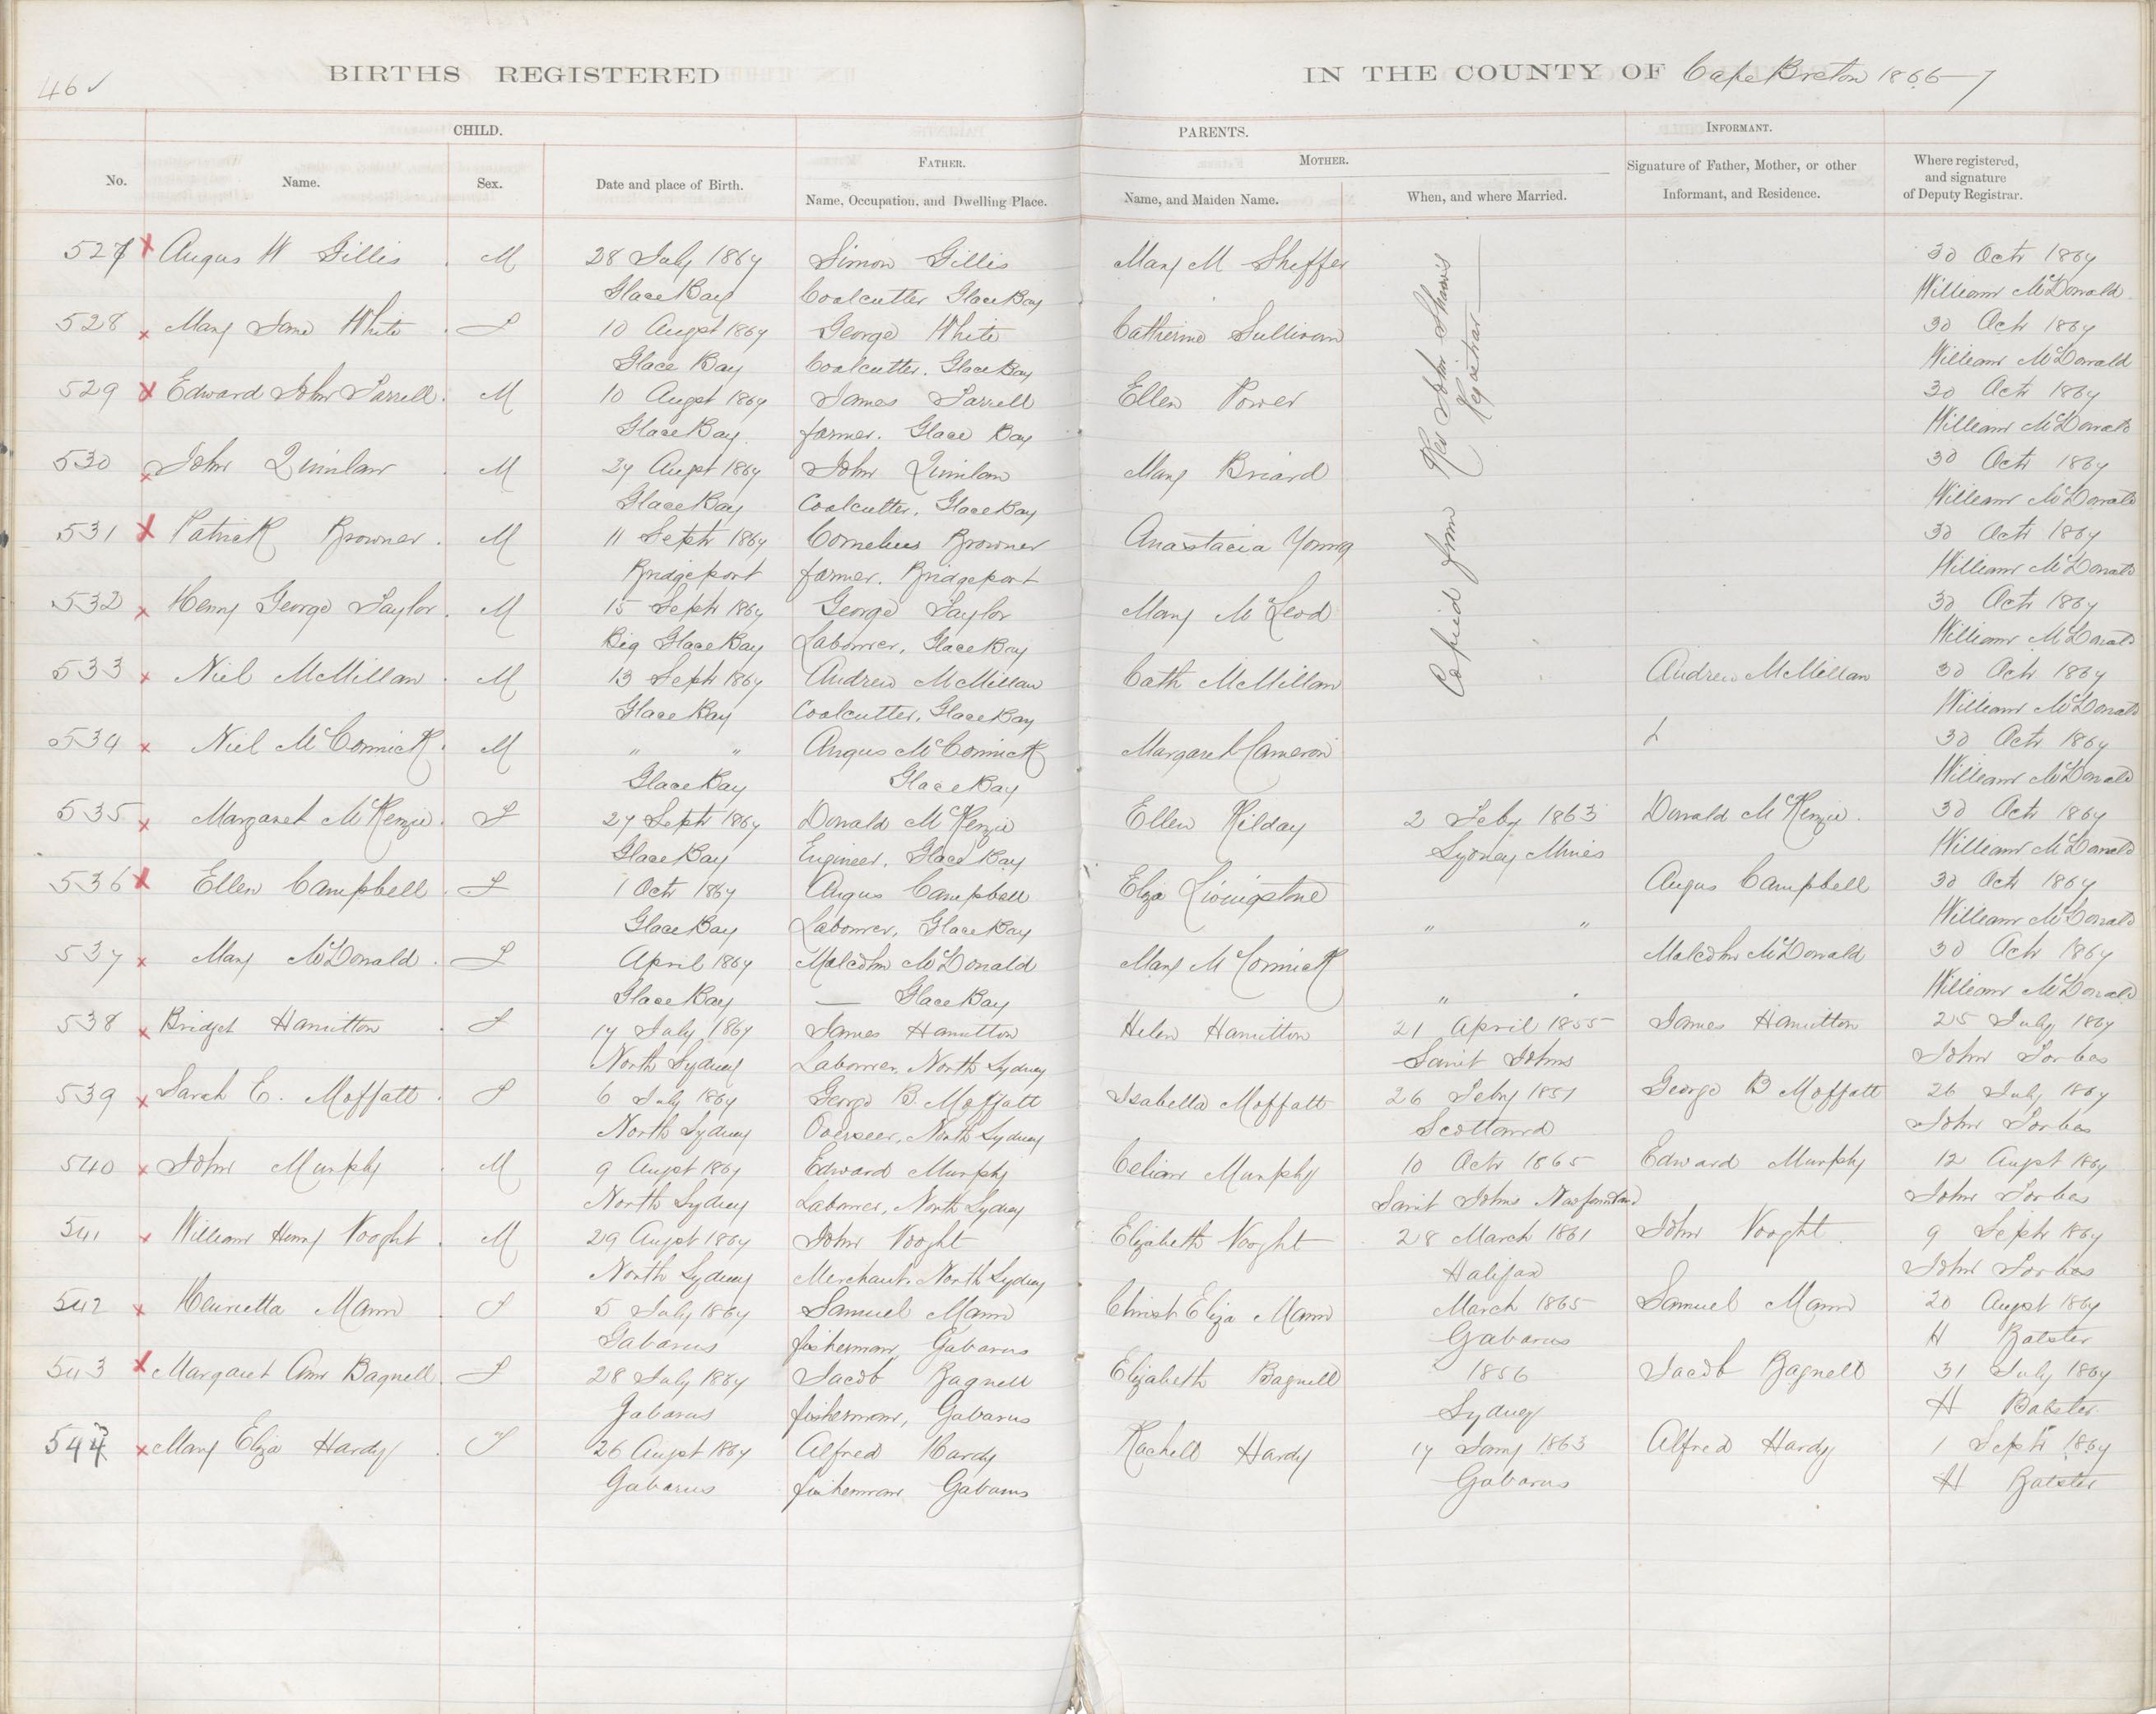 46
BIRTHS REGISTERED IN THE COUNTY OF Cape Breton 1866-7
CHILD. PARENTS. INFORMANT.
FATHER. MOTHER.
No. Name. Sex. Date and place of Birth. Name, Occupation, and Dwelling Place. Name, and Maiden Name. When, and where Married. Signature of Father, Mother, or other Informant, and Residence. Where registered, and signature of Deputy Registrar.
Copied from Rev John Shaws Registrar
527 Angus W Gillis M 28 July 1867 Simon Gillis Mary M Sheffer 30 Octr 1867
Glace Bay Coalcutter Glace Bay William McDonald
528 Mary Jane White F 10 Augst 1867 George White Catherine Sullivan 30 Octr 1867
Glace Bay Coalcutter. Glace Bay William McDonald
529 Edward John Farrell M 10 Augst 1867 James Farrell Ellen Power 30 Octr 1867
Glace Bay farmer. Glace Bay William McDonald
530 John Quinlan M 27 Augst 1867 John Quinlan Mary Briard 30 Octr 1867
Glace Bay Coalcutter, Glace Bay William McDonald
531 Patrick Browner M 11 Septr 1867 Cornelius Browner Anastacia Young 30 Octr 1867
Bridgeport farmer. Bridgeport William McDonald
532 Henry George Taylor M 15 Septr 1867 George Taylor Mary McLeod 30 Octr 1867
Big Glace Bay Labourer, Glace Bay William McDonald
533 Niel McMillan M 13 Septr 1867 Andrew McMillan Cath McMillan Andrew McMillan 30 Octr 1867
Glace Bay Coalcutter, Glace Bay William McDonald
534 Niel McCormick M " " Angus McCormick Margaret Cameron 30 Octr 1867
Glace Bay Glace Bay William McDonald
535 Margaret McKenzie F 27 Septr 1867 Donald McKenzie Ellen Kilday 2 Feby 1863 Donald McKenzie 30 Octr 1867
Glace Bay Engineer, Glace Bay Sydney Mines William McDonald
536 Ellen Campbell F 1 Octr 1867 Angus Campbell Eliza Livingstone Angus Campbell 30 Octr 1867
Glace Bay Labourer, Glace Bay " " William McDonald
537 Mary McDonald F April 1867 Malcolm McDonald Mary McCormick Malcolm McDonald 30 Octr 1867
Glace Bay — Glace Bay " William McDonald
538 Bridget Hamilton F 17 July 1867 James Hamilton Helen Hamilton 21 April 1855 James Hamilton 25 July 1867
North Sydney Labourer, North Sydney Saint Johns John Forbes
539 Sarah E. Moffatt F 6 July 1867 George B. Moffatt Isabella Moffatt 26 Feby 1851 George B Moffatt 26 July 1867
North Sydney Overseer, North Sydney Scotland John Forbes
540 John Murphy M 9 Augst 1867 Edward Murphy Celian Murphy 10 Octr 1865 Edward Murphy 12 Augst 1867
North Sydney Labourer, North Sydney Saint Johns Newfoundland John Forbes
541 William Henry Vooght M 29 Augst 1867 John Vooght Elizabeth Vooght 28 March 1861 John Vooght 9 Septr 1867
North Sydney Merchant. North Sydney Halifax John Forbes
542 Henrietta Mann F 5 July 1867 Samuel Mann Christ Eliza Mann March 1865 Samuel Mann 20 Augst 1867
Gabarus fisherman, Gabarus Gabarus H Batster
543 Margaret Ann Bagnell F 28 July 1867 Jacob Bagnell Elizabeth Bagnell 1856 Jacob Bagnell 31 July 1867
Gabarus fisherman, Gabarus Sydney H Batster
544 Mary Eliza Hardy F 26 Augst 1867 Alfred Hardy Rachell Hardy 17 Jany 1863 Alfred Hardy 1 Septr 1867
Gabarus fisherman Gabarus Gabarus H Batster